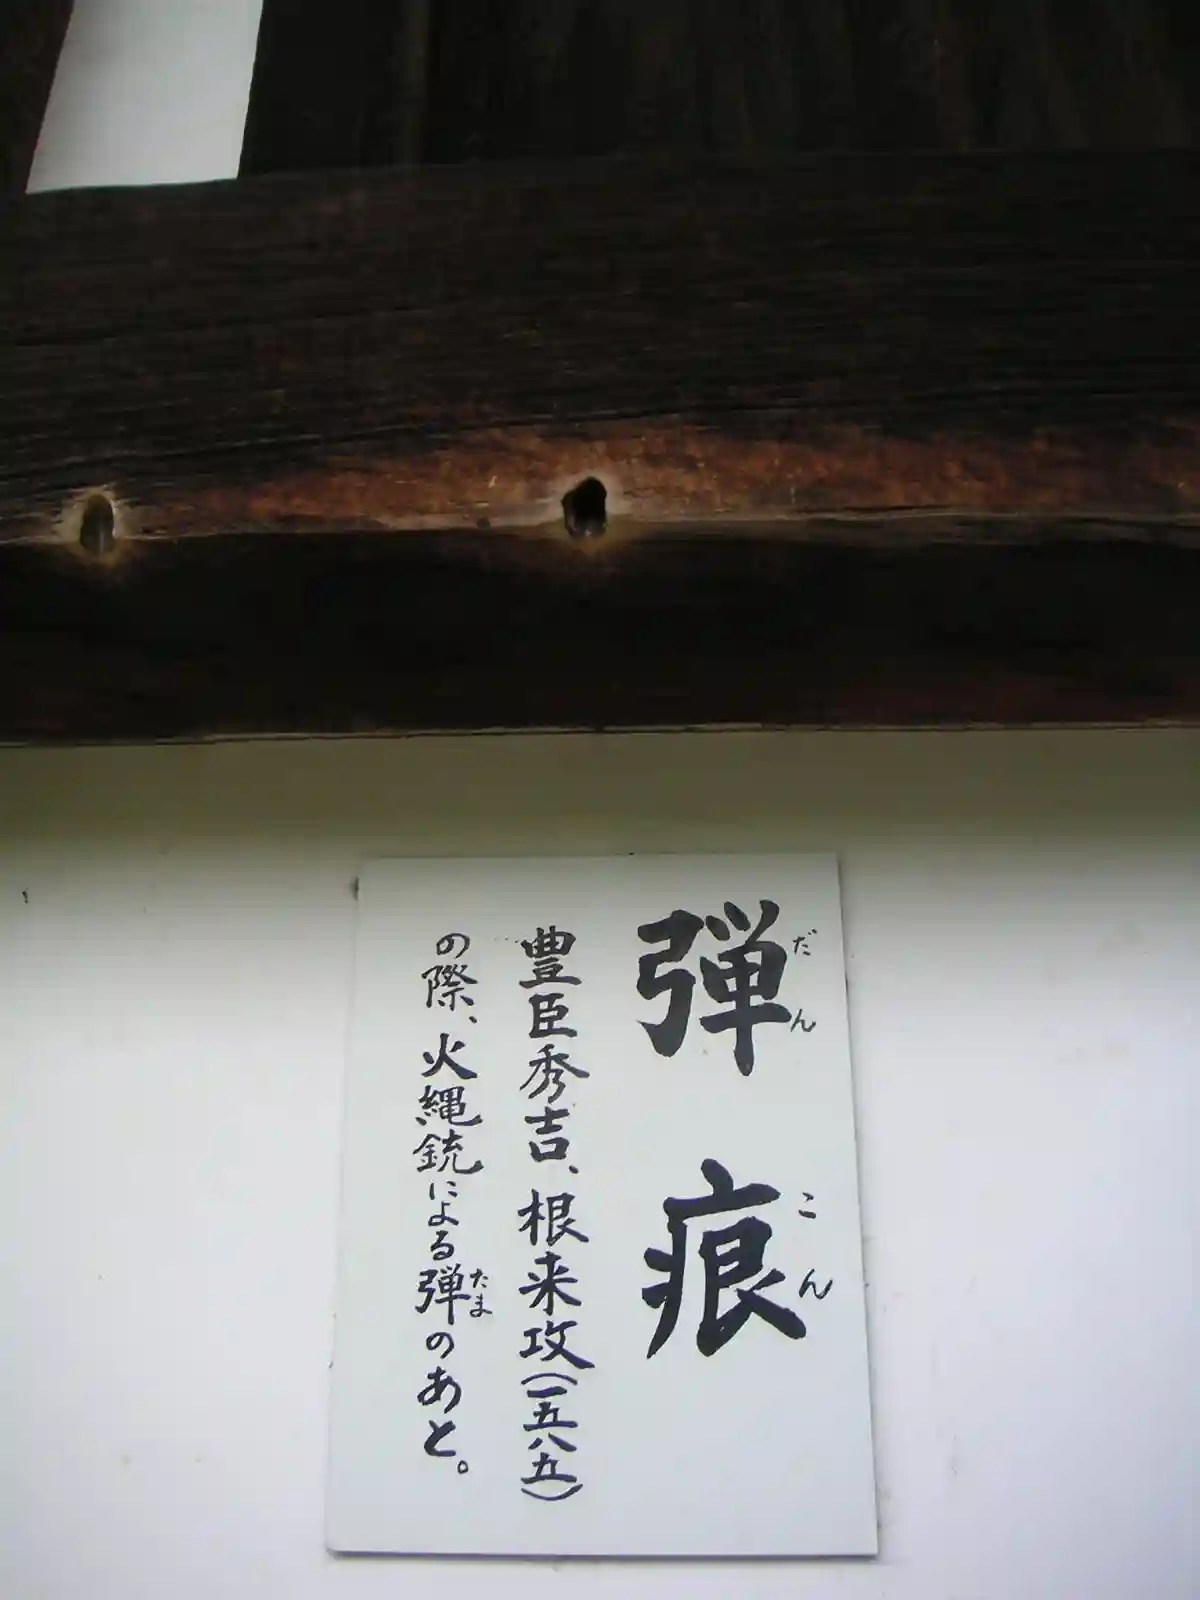 弾痕
だん
こん
豊臣秀吉、根来攻(一五八五)
の際、火縄銃による弾のあと。
たま